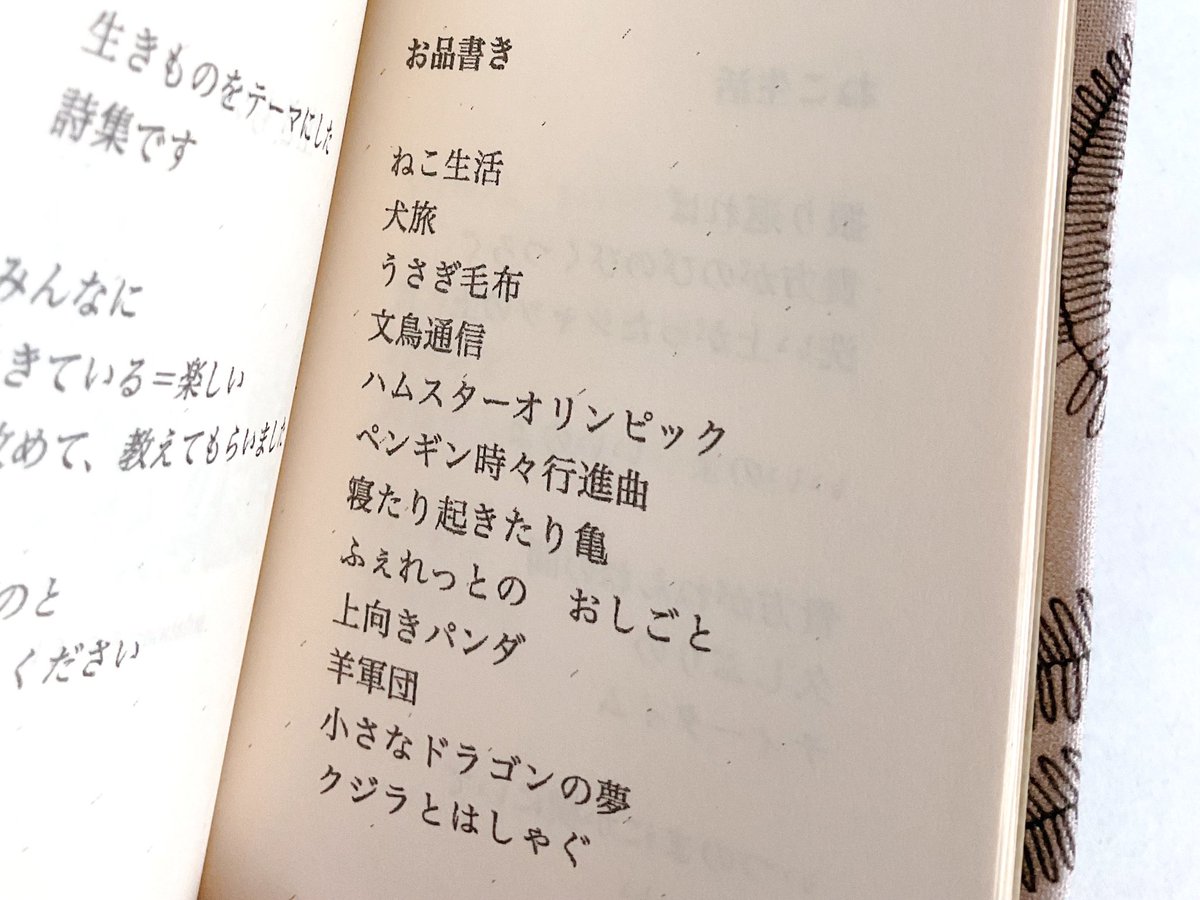 生きものをテーマにした
詩集です
みんなに
きている=楽しい
めて、教えてもらいました
のと
ください
お品書き
ねこ生活
犬旅
うさぎ毛布
文鳥通信
ハムスターオリンピック
ペンギン時々行進曲
寝たり起きたり亀
ふぇれっとの　おしごと
上向きパンダ
羊軍団
小さなドラゴンの夢
クジラとはしゃぐ